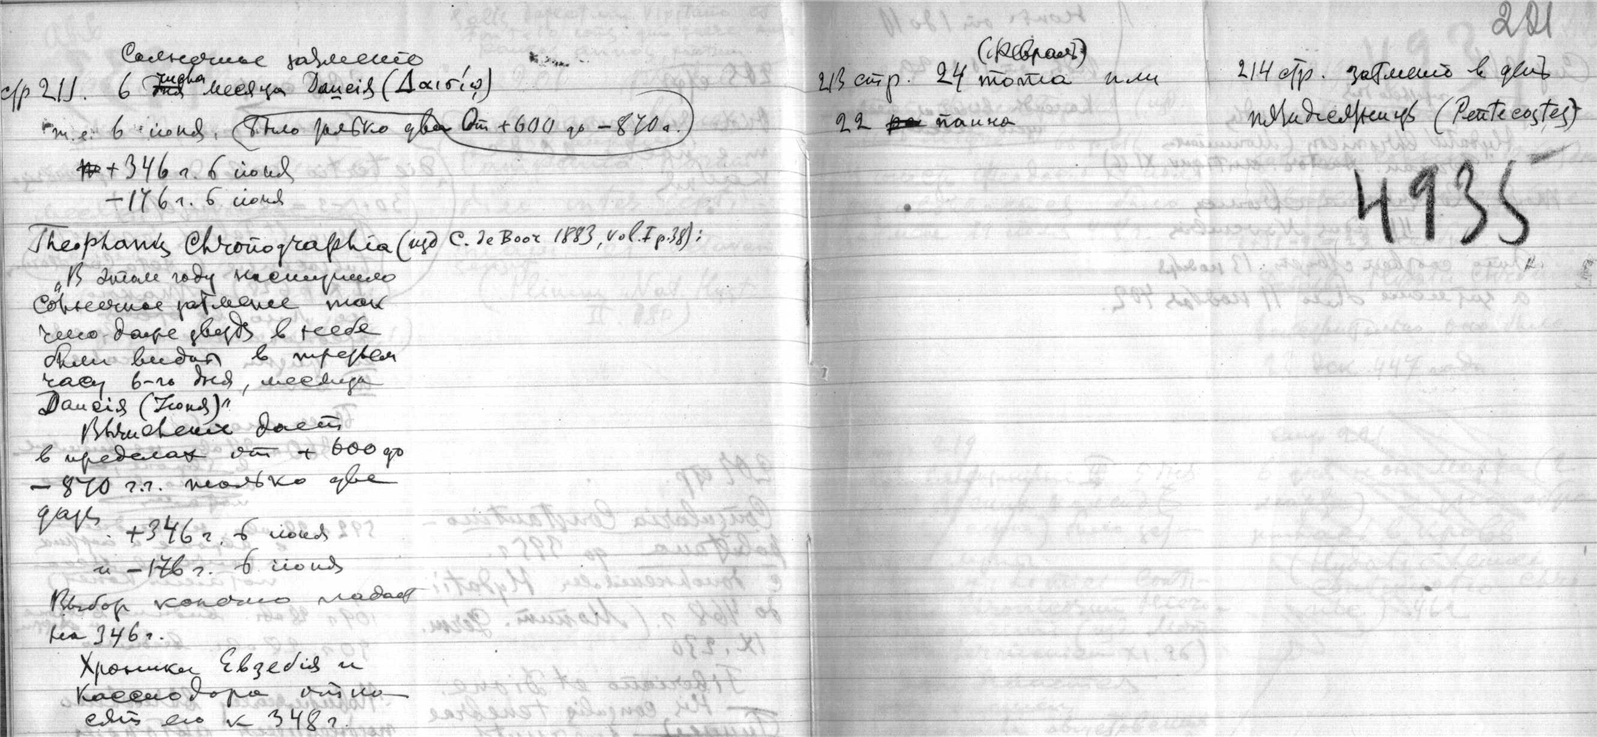 Солнечное затмение
стр 211. 6 числа месяца Даисія (Δαισίῳ)
т.е. 6 июня. (было только два От +600 до −870 г.)
+346 г. 6 июня
−176 г. 6 июня
Theophanis Chronographia (изд C. de Boor 1883, vol. I p. 38):
„В этом году наступило
солнечное затмение так
что даже звезды в небе
были видны в третьем
часу 6-го дня, месяца
Даисія (Июня)"
Вычисление дает
в пределах от +600 до
−870 г.г. только две
даты
+346 г. 6 июня
и −176 г. 6 июня
Выбор конечно падает
на 346 г.
Хроники Евзебія и
Кассиодора отно-
сят его к 348 г.
201
(февраля)
213 стр. 24 тота или
22 паина
214 стр. затмение в день
пятидесятницы (Pentecostes)
4935